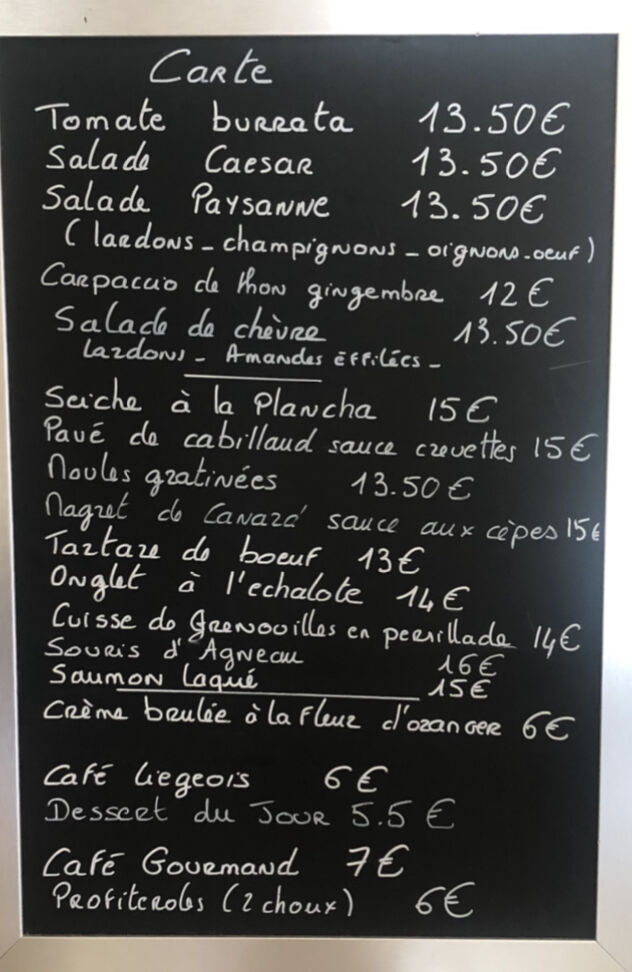 Carte
Tomate burrata 13.50€
Salade Caesar 13.50€
Salade Paysanne 13.50€
(lardons - champignons - oignons - oeuf)
Carpaccio de thon gingembre 12€
Salade de chèvre 13.50€
lardons - Amandes Effilées -
Seiche à la Plancha 15€
Pavé de cabillaud sauce crevettes 15€
Moules gratinées 13.50€
Magret de Canard sauce aux cèpes 15€
Tartare de boeuf 13€
Onglet à l'echalote 14€
Cuisse de grenouilles en persillade 14€
Souris d'Agneau 16€
Saumon laqué 15€
Crème brulée à la fleur d'oranger 6€
Café liegeois 6€
Dessert du Jour 5.5€
Café Gourmand 7€
Profiteroles (2 choux) 6€